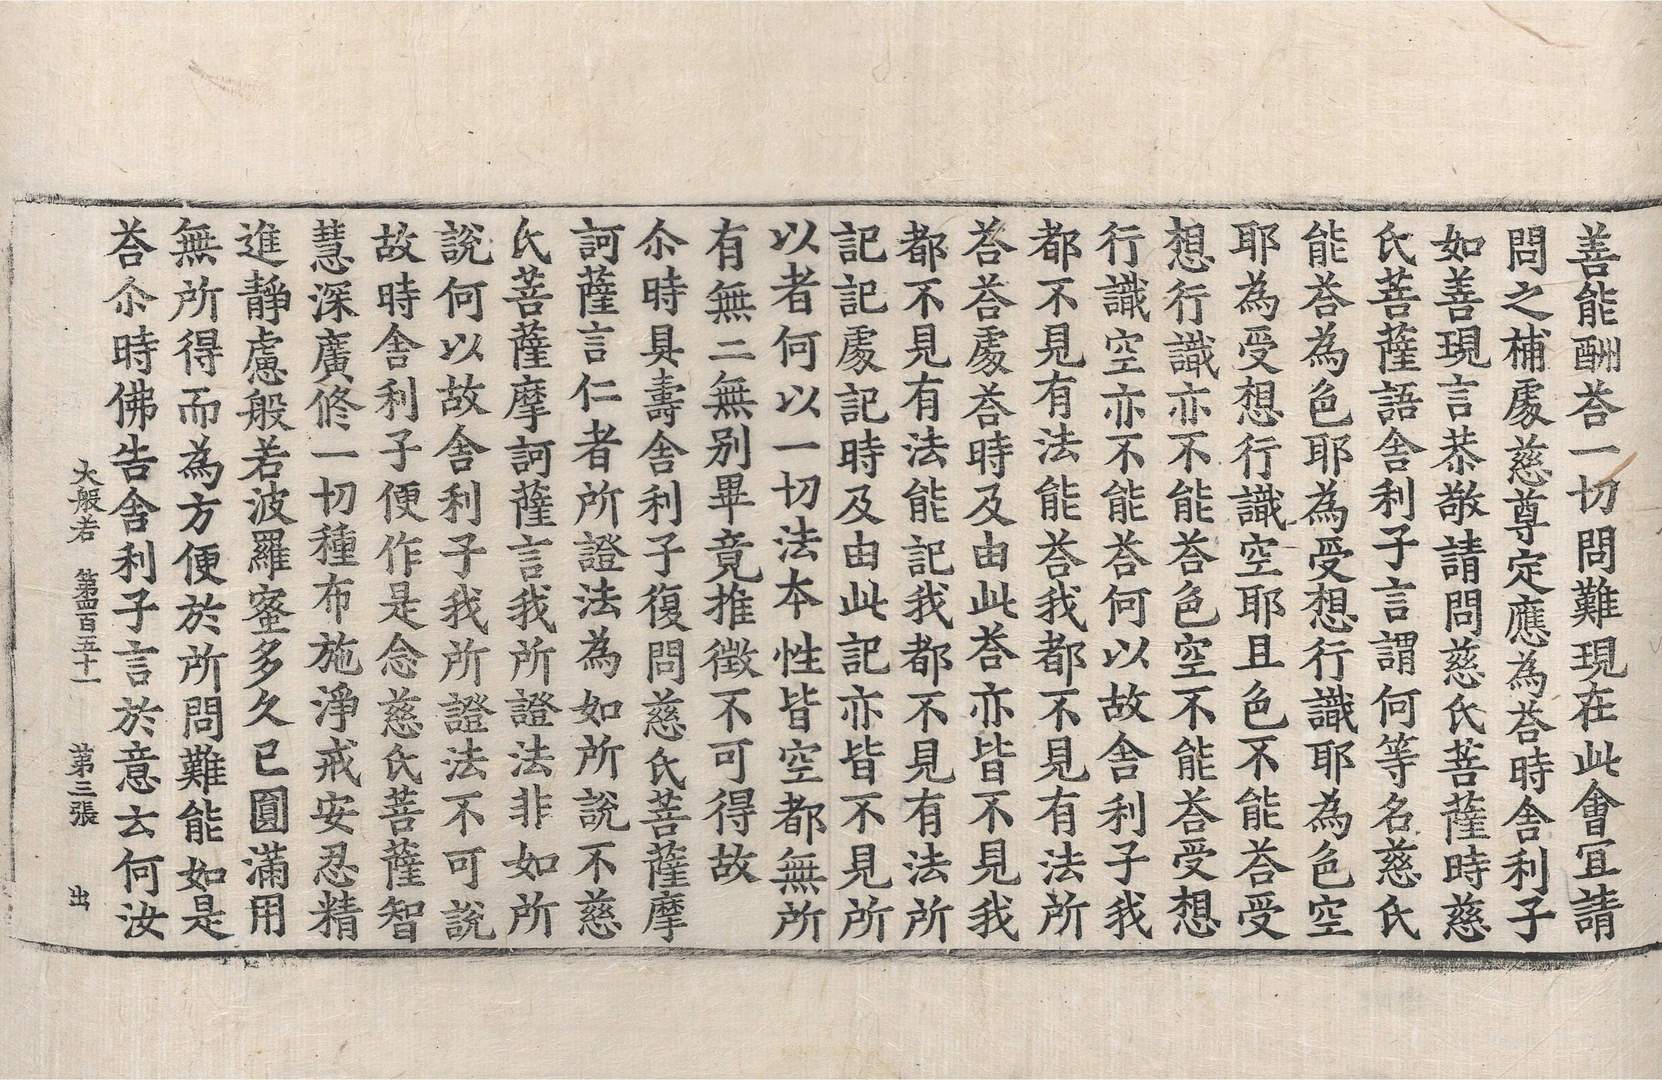 善能酬荅一切問難現在此會宜請
問之補處慈尊定應為荅時舍利子
如善現言恭敬請問慈氏菩薩時慈
氏菩薩語舍利子言謂何等名慈氏
能荅為色耶為受想行識耶為色空
耶為受想行識空耶且色不能荅受
想行識亦不能荅色空不能荅受想
行識空亦不能荅何以故舍利子我
都不見有法能荅我都不見有法所
荅荅處荅時及由此荅亦皆不見我
都不見有法能記我都不見有法所
記記處記時及由此記亦皆不見所
以者何以一切法本性皆空都無所
有無二無別畢竟推徵不可得故
尒時具壽舍利子復問慈氏菩薩摩
訶薩言仁者所證法為如所說不慈
氏菩薩摩訶薩言我所證法非如所
說何以故舍利子我所證法不可說
故時舍利子便作是念慈氏菩薩智
慧深廣修一切種布施淨戒安忍精
進靜慮般若波羅蜜多久已圓滿用
無所得而為方便於所問難能如是
荅尒時佛告舍利子言於意云何汝
大般若 第四百五十一 第三張 出